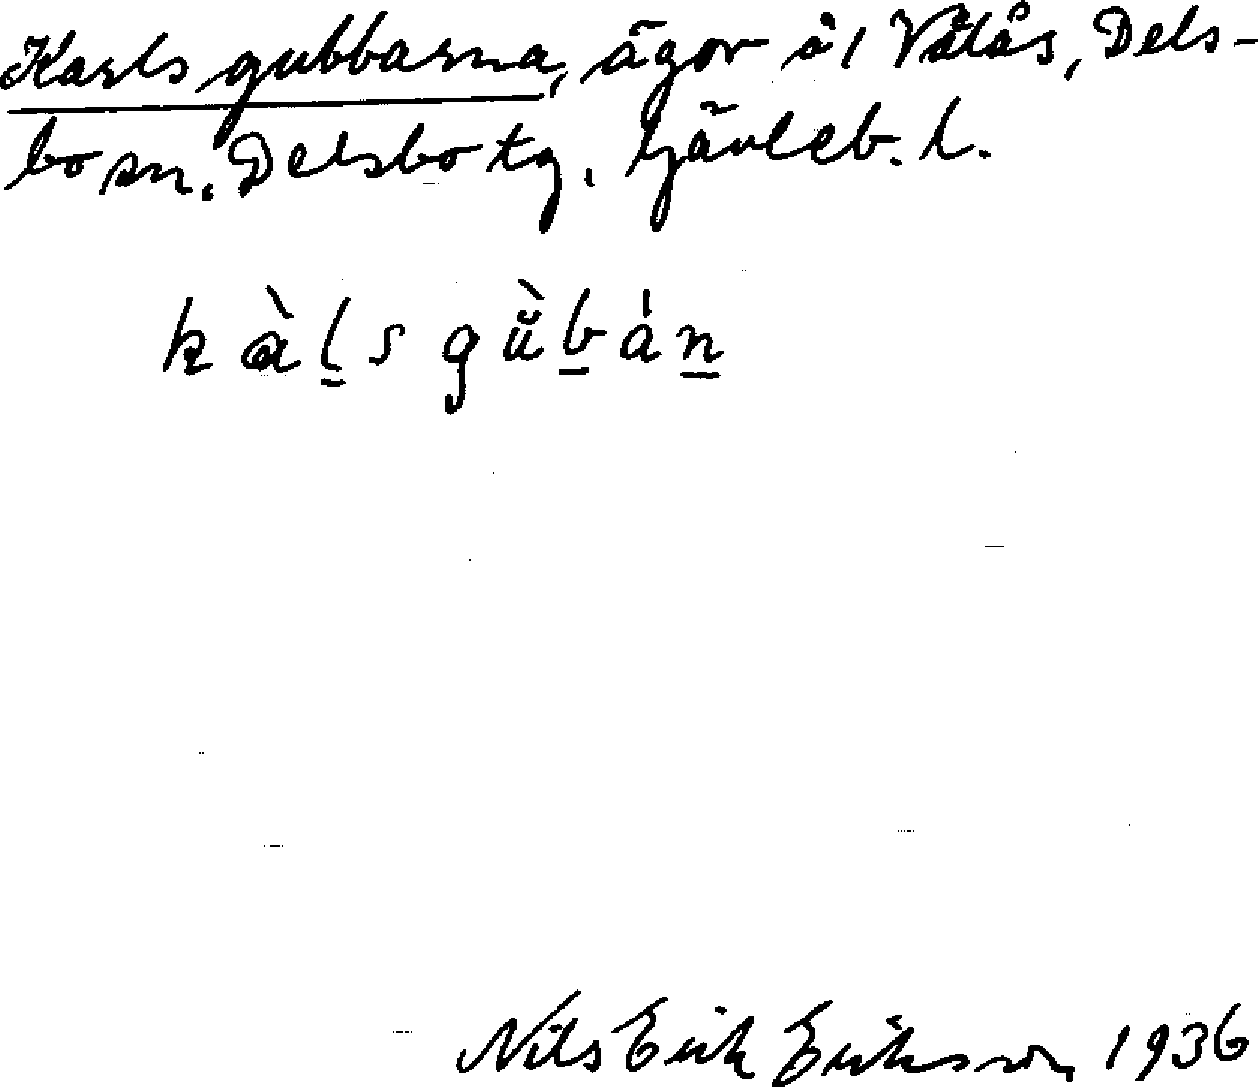 Karlsgubbarna, ägor å 1 Vålås, Dels-
bo sn. Delsbo tg, Gävleb. l.
kàl̲sgŭ̀b̲án̲
Nils Erik Eriksson 1936